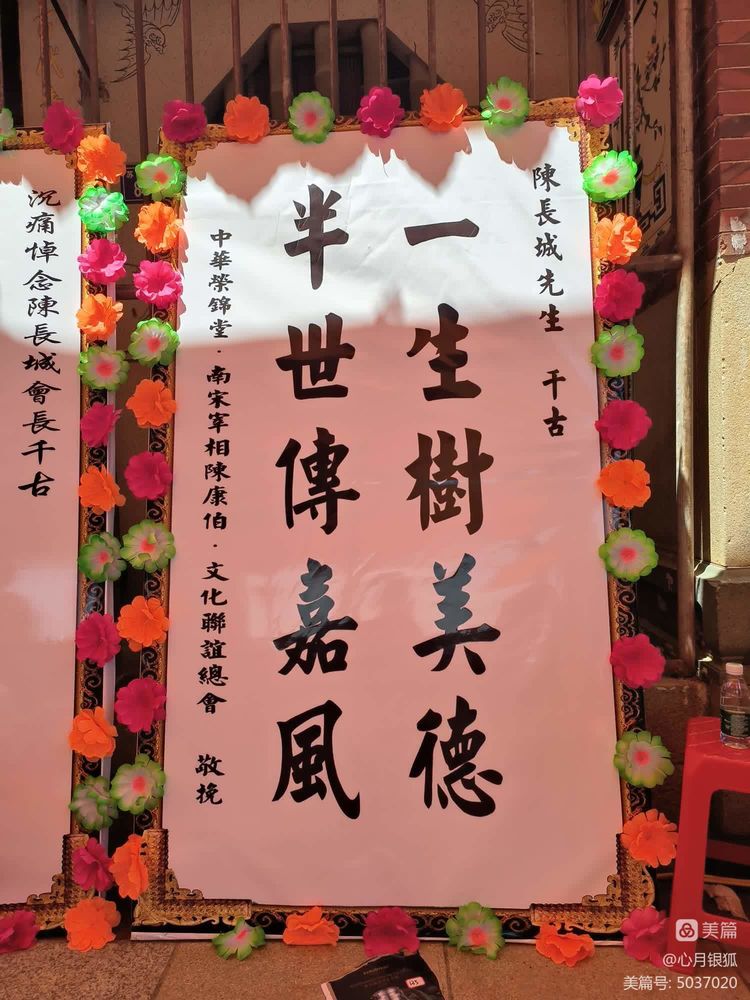 陳長城先生　千古
一生樹美德
半世傳嘉風
中華榮錦堂·南宋宰相陳康伯·文化聯誼總會　敬挽
沉痛悼念陳長城會長千古
美篇
@心月银狐
美篇号: 5037020